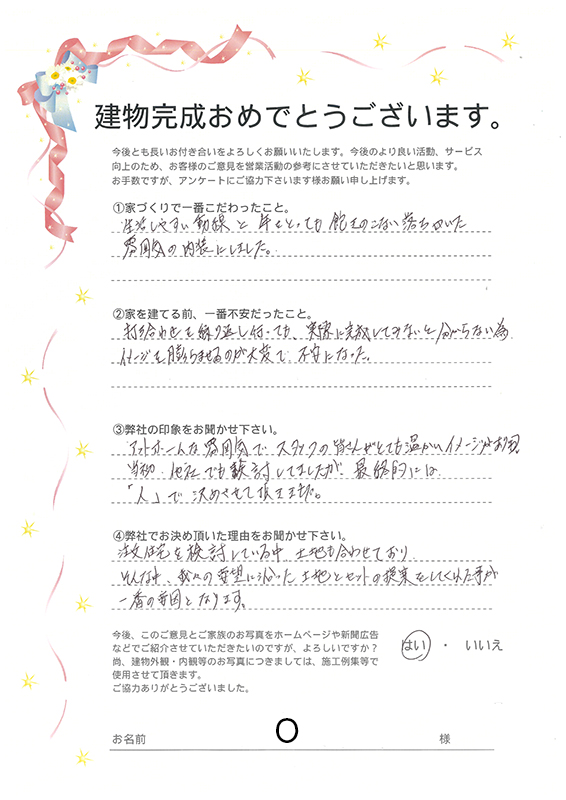 建物完成おめでとうございます。
今後とも長いお付き合いをよろしくお願いいたします。今後のより良い活動、サービス
向上のため、お客様のご意見を営業活動の参考にさせていただきたいと思います。
お手数ですが、アンケートにご協力下さいます様お願い申し上げます。
①家づくりで一番こだわったこと。
生活しやすい動線と年をとっても飽きのこない落ち着いた
雰囲気の内装にしました。
②家を建てる前、一番不安だったこと。
打ち合わせを繰り返し行っても、実際に完成してみないと分からない為
イメージを膨らませるのが大変で、不安になった。
③弊社の印象をお聞かせ下さい。
アットホームな雰囲気でスタッフの皆さんがとても温かいイメージがあり
当初、他社でも検討してましたが、最終的には
「人」で決めさせて頂きました。
④弊社でお決め頂いた理由をお聞かせ下さい。
注文住宅を検討している中、土地も合わせており
そんな中、我々の要望に沿った土地とセットの提案をしてくれた事が
一番の要因となります。
今後、このご意見とご家族のお写真をホームページや新聞広告
などでご紹介させていただきたいのですが、よろしいですか？
はい ・ いいえ
尚、建物外観・内観等のお写真につきましては、施工例集等で
使用させて頂きます。
ご協力ありがとうございました。
お名前 O 様